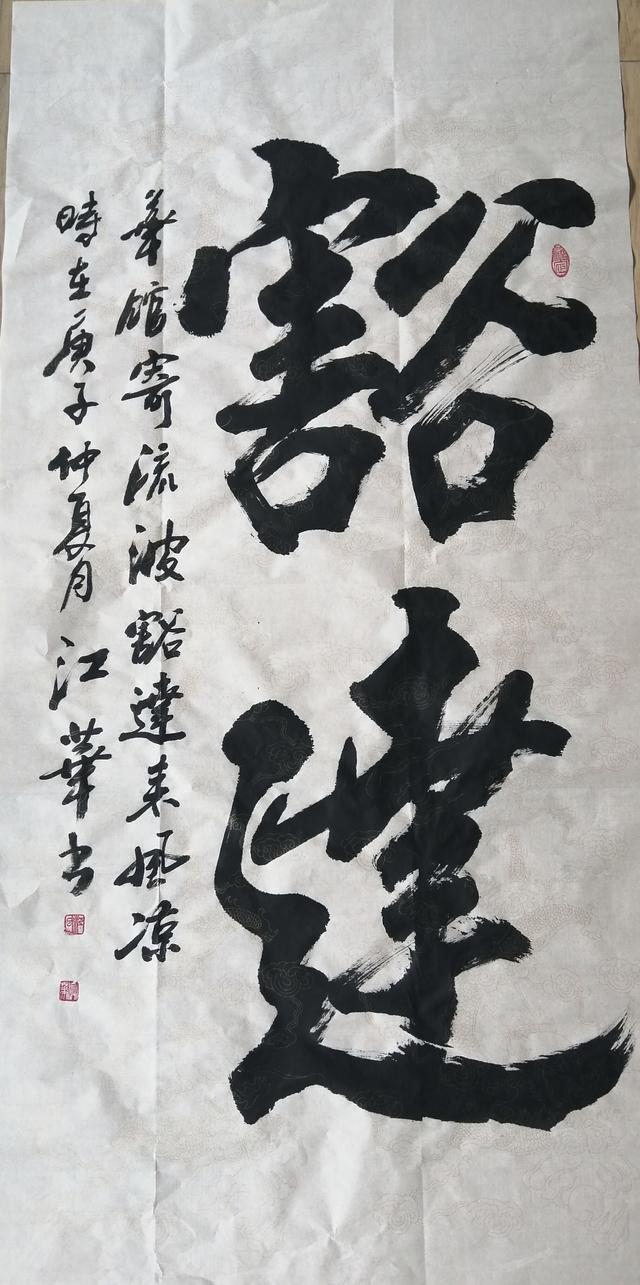 豁達
華館寄流波豁達来風涼
時在庚子仲夏月江華书